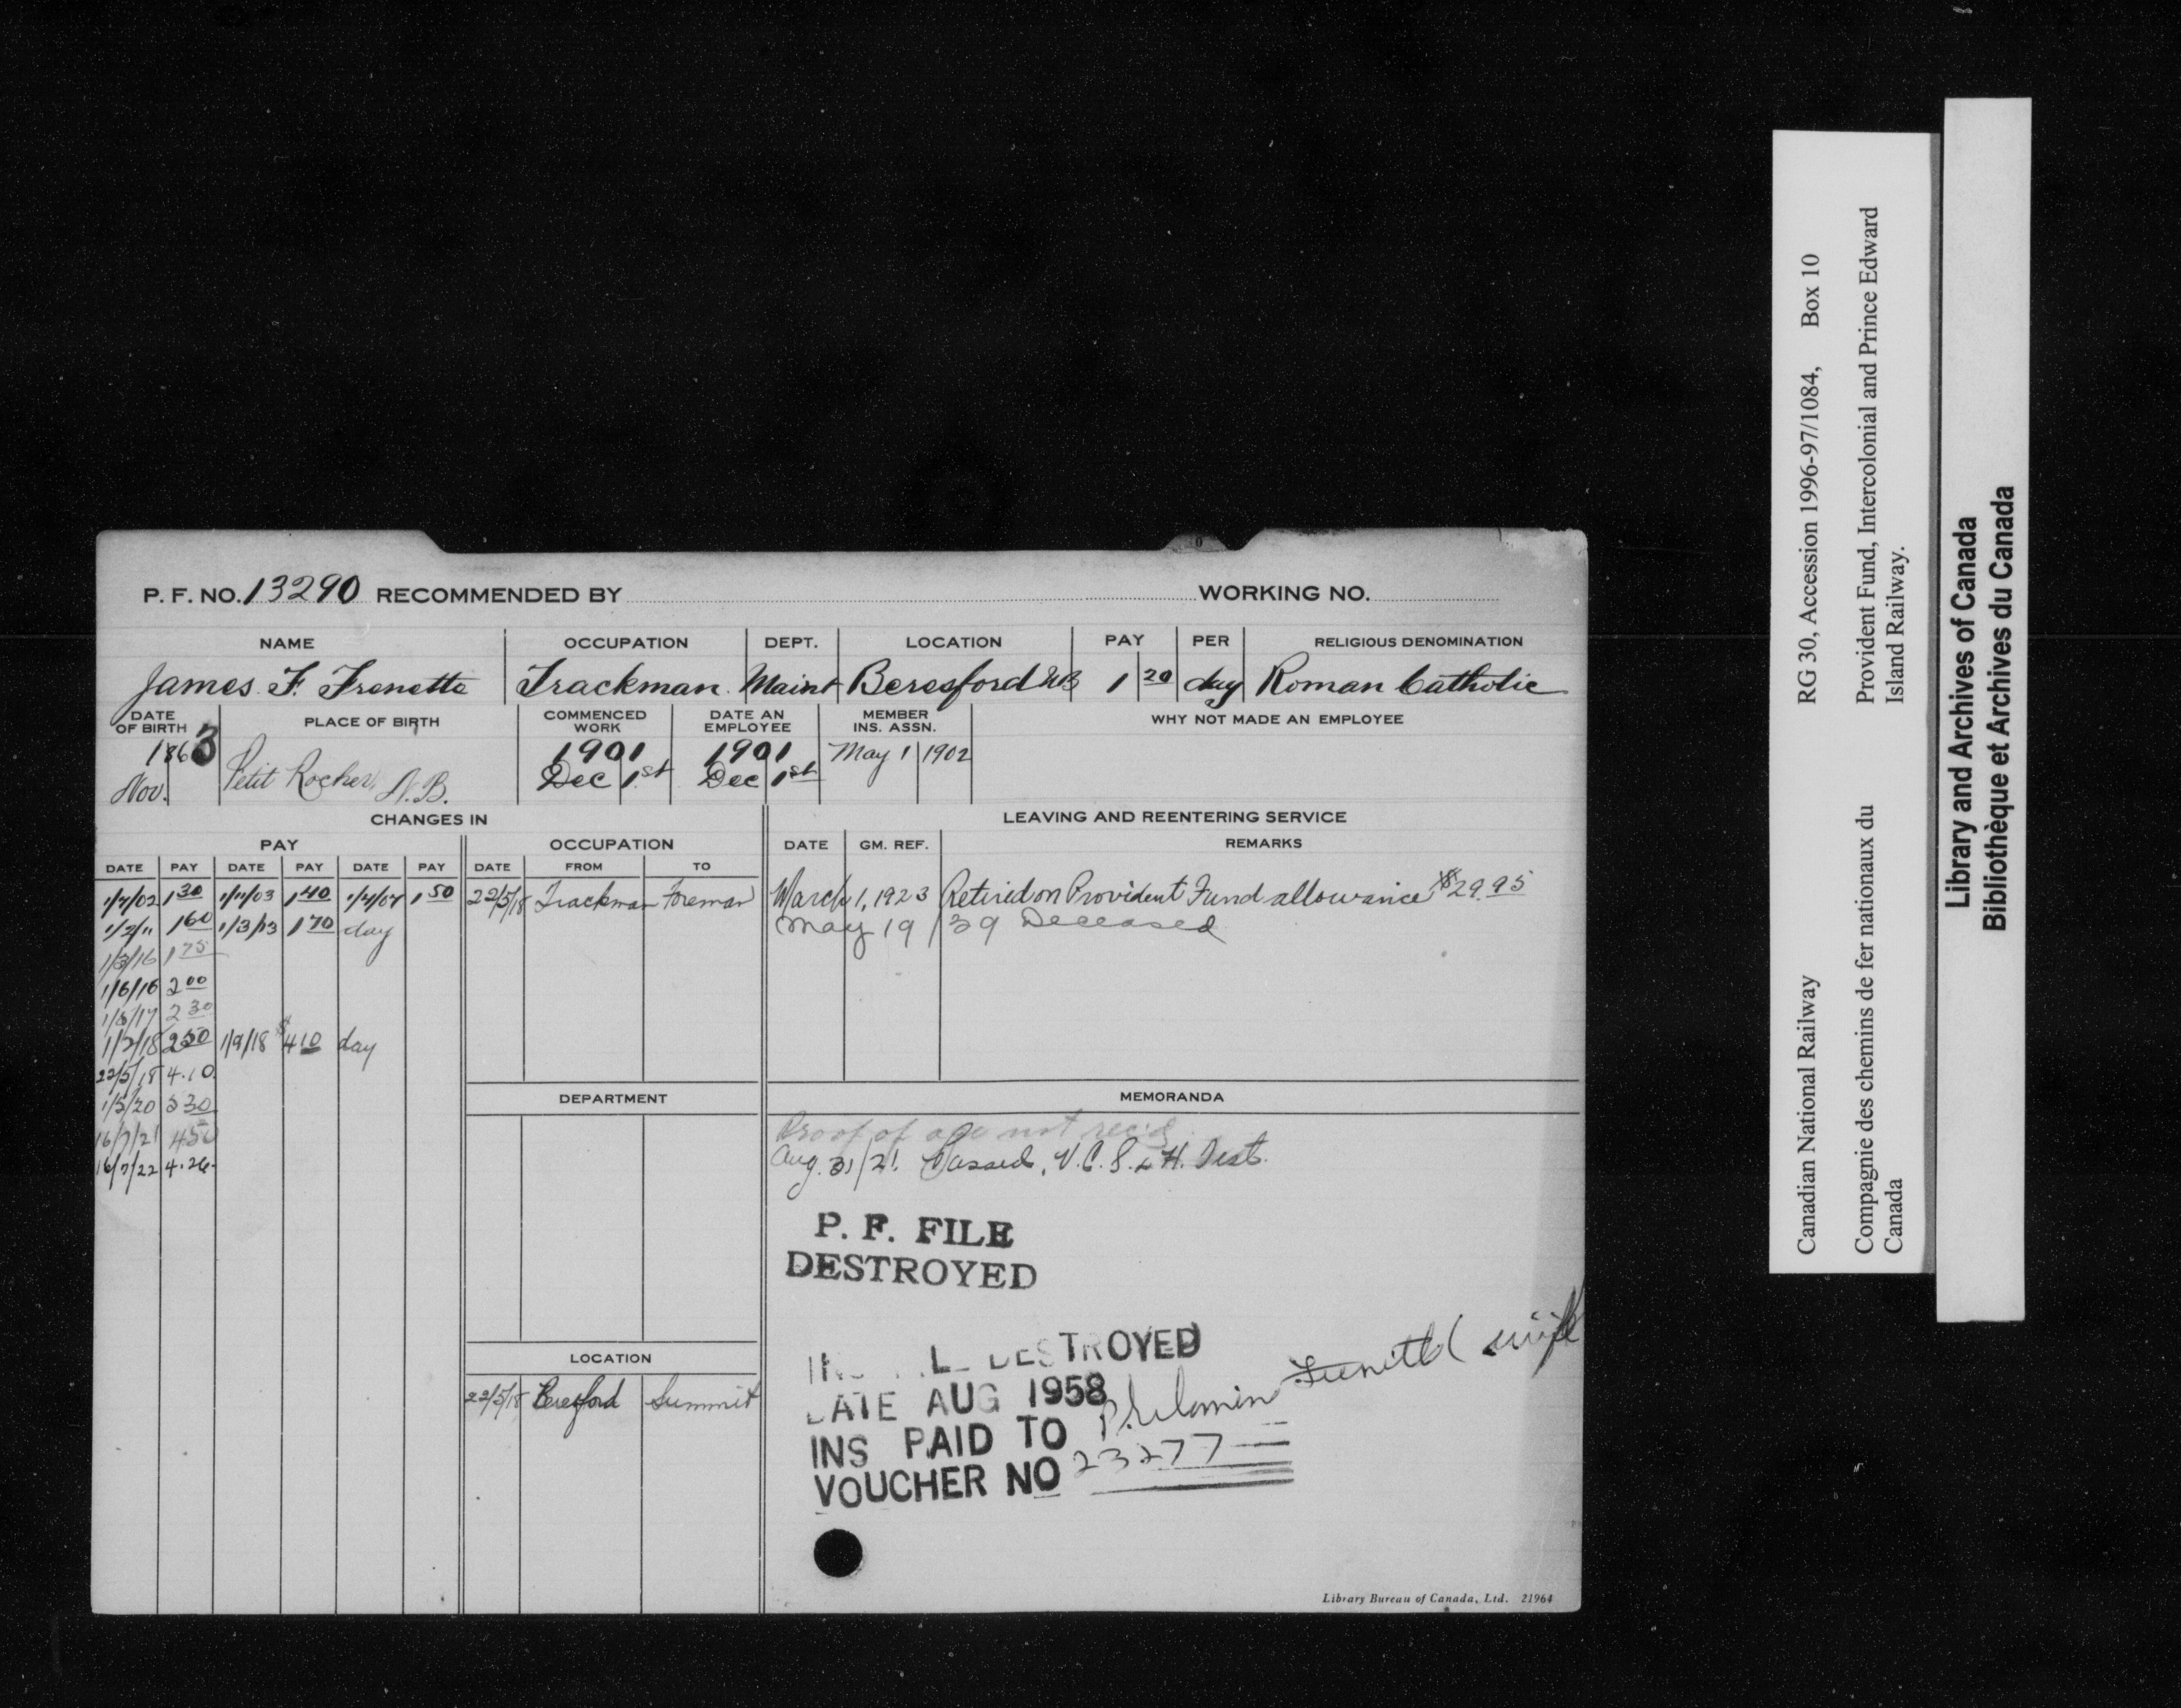 P. F. NO. 13290 RECOMMENDED BY WORKING NO.
NAME OCCUPATION DEPT. LOCATION PAY PER RELIGIOUS DENOMINATION
James F. Frenette Trackman Maint Beresford NB 1 20 day Roman Catholic
DATE OF BIRTH PLACE OF BIRTH COMMENCED WORK DATE AN EMPLOYEE MEMBER INS. ASSN. WHY NOT MADE AN EMPLOYEE
1863 1901 1901 May 1 1902
Nov. Petit Rocher, N.B. Dec 1st Dec 1st
CHANGES IN LEAVING AND REENTERING SERVICE
PAY OCCUPATION DATE GM. REF. REMARKS
DATE PAY DATE PAY DATE PAY DATE FROM TO
1/7/02 1 30 1/11/03 1 40 1/4/07 1 50 22/5/18 Trackman Foreman March 1, 1923 Retired on Provident Fund allowance $29.95
1/2/11 1 60 1/3/13 1 70 day May 19/39 Deceased
1/3/16 1 75
1/6/16 2 00
1/5/17 2 30
1/2/18 2 50 1/9/18 $4 10 day
22/5/18 4.10
1/5/20 5 30
16/7/21 4 50
16/7/22 4.26
DEPARTMENT MEMORANDA
Proof of age not rec'd
Aug. 31/21. Passed, V.C.S. & H. Test.
P. F. FILE
DESTROYED
DESTROYED
DATE AUG 1958
INS PAID TO Philomin Frenette (wife
VOUCHER NO 23277
LOCATION
22/5/18 Beresford Summit
Library Bureau of Canada, Ltd. 21964
Canadian National Railway RG 30, Accession 1996-97/1084, Box 10
Compagnie des chemins de fer nationaux du Provident Fund, Intercolonial and Prince Edward
Canada Island Railway.
Library and Archives of Canada
Bibliothèque et Archives du Canada